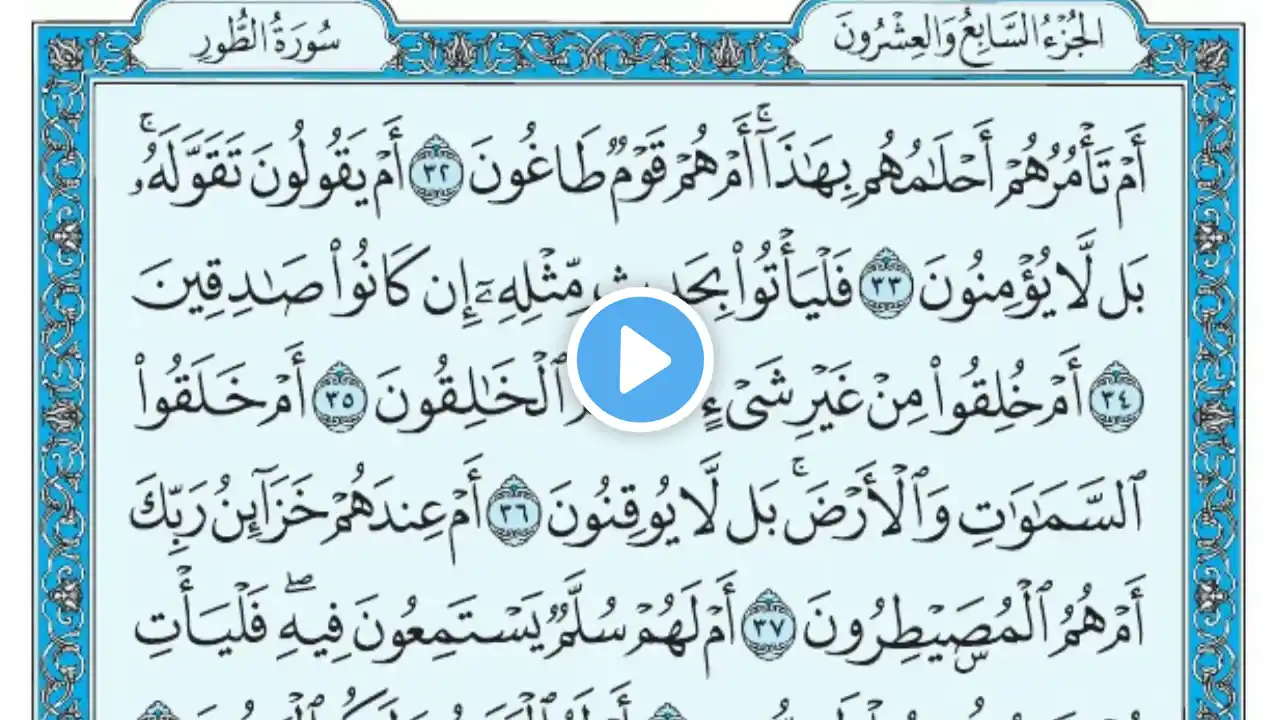 الجُزْءُ السَّابِعُ وَالعِشْرُونَ
سُورَةُ الطُّورِ
أَمْ تَأْمُرُهُمْ أَحْلَٰمُهُم بِهَٰذَآۚ أَمْ هُمْ قَوْمٌ طَاغُونَ ٣٢ أَمْ يَقُولُونَ تَقَوَّلَهُۥۚ
بَل لَّا يُؤْمِنُونَ ٣٣ فَلْيَأْتُوا۟ بِحَدِيثٍ مِّثْلِهِۦٓ إِن كَانُوا۟ صَٰدِقِينَ
٣٤ أَمْ خُلِقُوا۟ مِنْ غَيْرِ شَىْءٍ ٱلْخَٰلِقُونَ ٣٥ أَمْ خَلَقُوا۟
ٱلسَّمَٰوَٰتِ وَٱلْأَرْضَۚ بَل لَّا يُوقِنُونَ ٣٦ أَمْ عِندَهُمْ خَزَآئِنُ رَبِّكَ
أَمْ هُمُ ٱلْمُصَۜيْطِرُونَ ٣٧ أَمْ لَهُمْ سُلَّمٌ يَسْتَمِعُونَ فِيهِۖ فَلْيَأْتِ